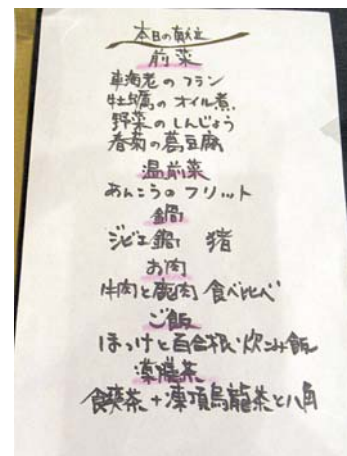 本日の献立
前菜
車海老のフラン
牡蠣のオイル煮
野菜のしんじょう
春菊の葛豆腐
温前菜
あんこうのフリット
鍋
ジビエ鍋 猪
お肉
牛肉と鹿肉 食べ比べ
ご飯
ほっけと百合根 炊込み飯
薬膳茶
食瘼茶+凍頂烏龍茶と八角